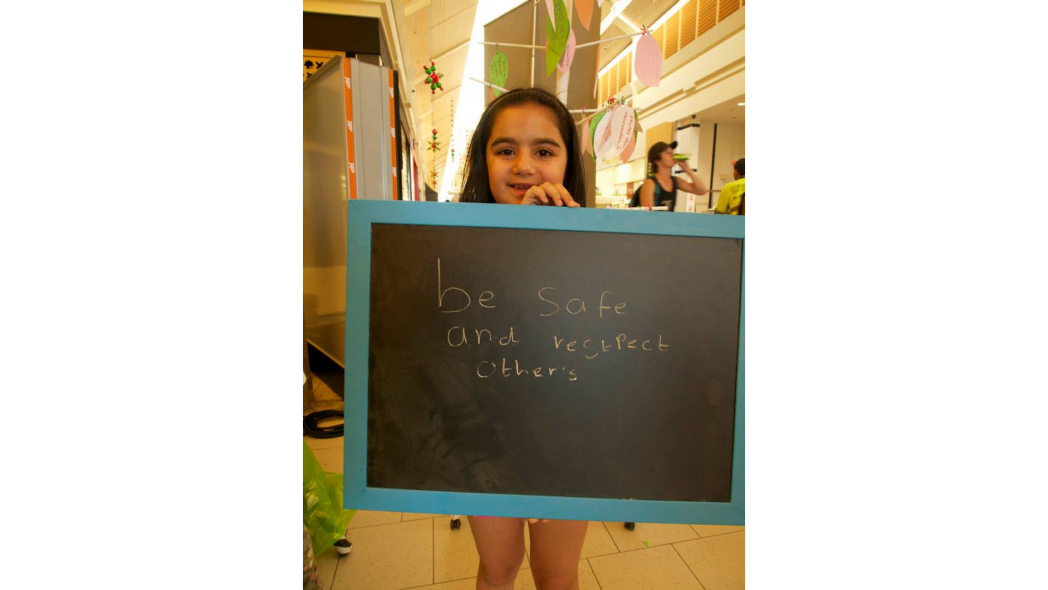 be Safe
and restpect
other's